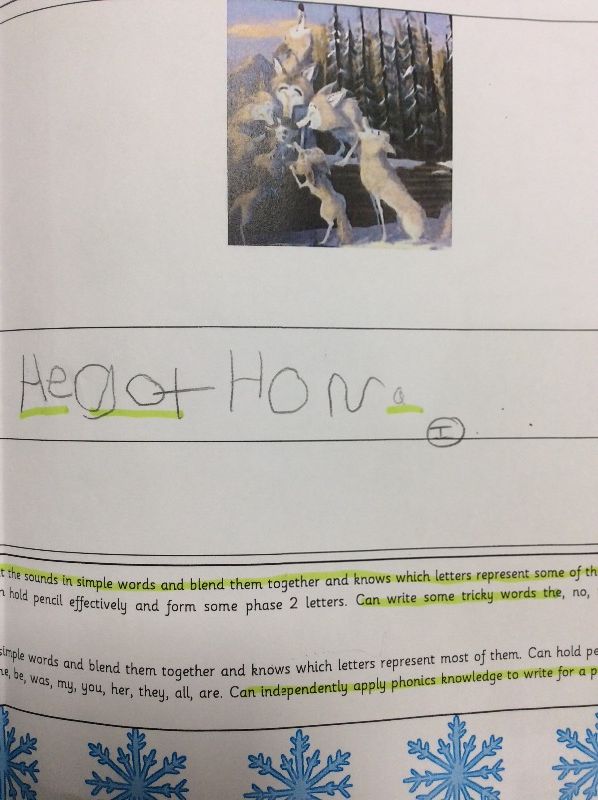 He got HoN a
I
t the sounds in simple words and blend them together and knows which letters represent some of th
n hold pencil effectively and form some phase 2 letters. Can write some tricky words the, no,
simple words and blend them together and knows which letters represent most of them. Can hold pe
ne, be, was, my, you, her, they, all, are. Can independently apply phonics knowledge to write for a p